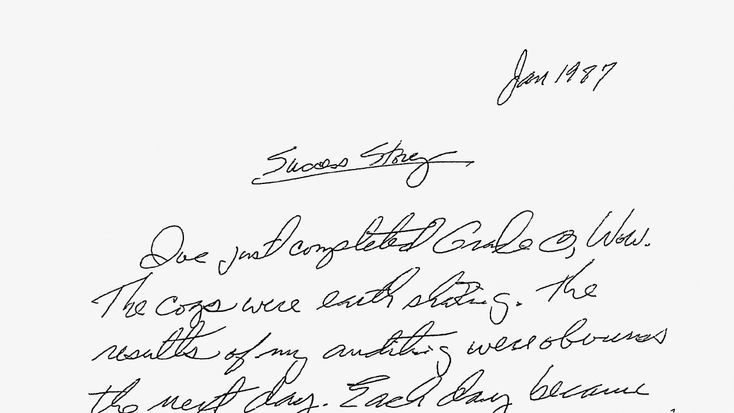 Jan 1987
Success Story
I've just completed Grade 0, Wow.
The cogs were earth shaking. The
results of my auditing were obvious
the next day. Each day became